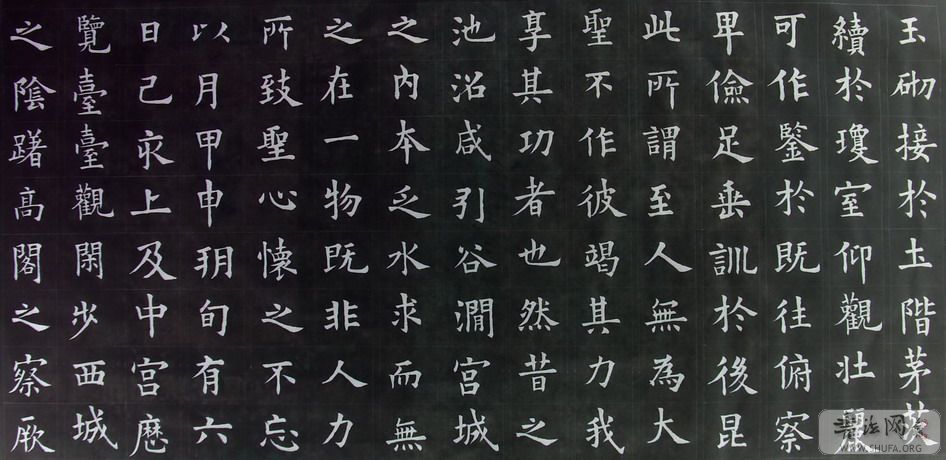 玉砌接於土階茅茨
續於瓊室仰觀壯麗
可作鑒於既往俯察
卑儉足垂訓於後昆
此所謂至人無為大
聖不作彼竭其力我
享其功者也然昔之
池沼咸引谷澗宮城
之內本乏水求而無
之在一物既非人力
所致聖心懷之不忘
以月甲申朔旬有六
日己亥上及中宮歷
覽臺臺觀閑步西城
之陰躇高閣之察厥
書法网
WWW.SHUFA.ORG